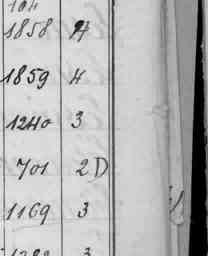 104
1858 4
1859 4
1240 3
701 2D
1169 3